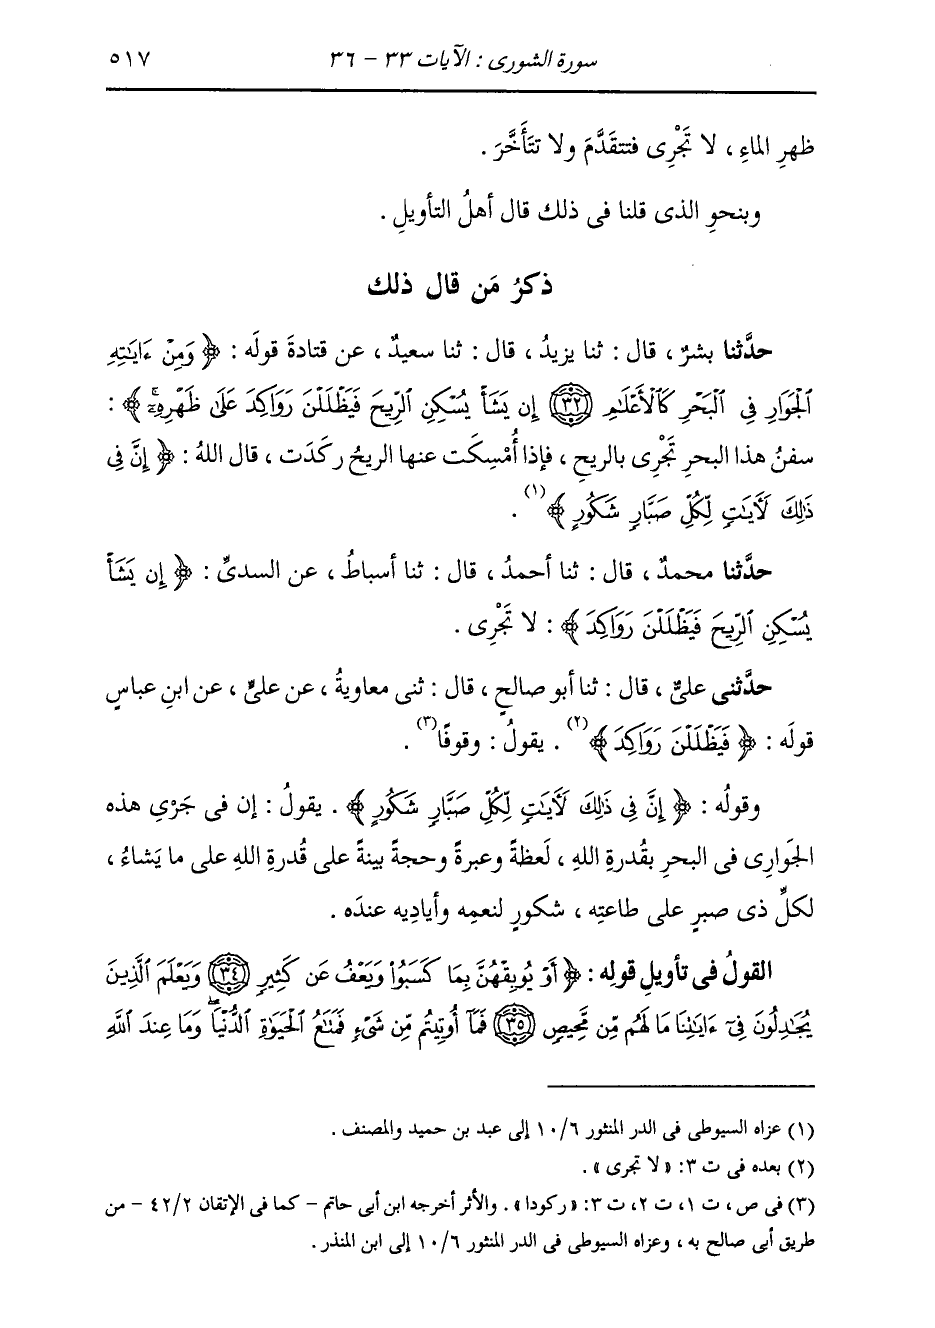 سورة الشورى : الآيات ٣٣ - ٣٦ ٥١٧
ظهرِ الماءِ ، لا تَجْرِى فتتقَدَّمَ ولا تتَأَخَّرَ .
وبنحوِ الذى قلنا فى ذلك قال أهلُ التأويلِ .
ذكرُ مَن قال ذلك
حدَّثنا بشرٌ ، قال : ثنا يزيدُ ، قال : ثنا سعيدٌ ، عن قتادةَ قولَه : ﴿ وَمِنْ ءَايَٰتِهِ
ٱلْجَوَارِ فِى ٱلْبَحْرِ كَٱلْأَعْلَٰمِ ﴿٣٢﴾ إِن يَشَأْ يُسْكِنِ ٱلرِّيحَ فَيَظْلَلْنَ رَوَاكِدَ عَلَىٰ ظَهْرِهِۦٓ ۚ ﴾ :
سفنُ هذا البحرِ تَجْرِى بالريحِ ، فإذا أُمْسِكَت عنها الريحُ ركَدَت ، قال اللهُ : ﴿ إِنَّ فِى
ذَٰلِكَ لَءَايَٰتٍ لِّكُلِّ صَبَّارٍ شَكُورٍ ﴾(١) .
حدَّثنا محمدٌ ، قال : ثنا أحمدُ ، قال : ثنا أسباطُ ، عن السدىِّ : ﴿ إِن يَشَأْ
يُسْكِنِ ٱلرِّيحَ فَيَظْلَلْنَ رَوَاكِدَ ﴾ : لا تَجْرِى .
حدَّثنى علىٌّ ، قال : ثنا أبو صالحٍ ، قال : ثنى معاويةُ ، عن علىٍّ ، عن ابنِ عباسٍ
قولَه : ﴿ فَيَظْلَلْنَ رَوَاكِدَ ﴾(٢) . يقولُ : وقوفًا(٣) .
وقولُه : ﴿ إِنَّ فِى ذَٰلِكَ لَءَايَٰتٍ لِّكُلِّ صَبَّارٍ شَكُورٍ ﴾ . يقولُ : إن فى جَرْىِ هذه
الجَوارِى فى البحرِ بقُدرةِ اللهِ ، لَعظةً وعبرةً وحجةً بينةً على قُدرةِ اللهِ على ما يَشاءُ ،
لكلِّ ذى صبرٍ على طاعتِه ، شكورٍ لنعمِه وأيادِيه عندَه .
القولُ فى تأويلِ قولِه : ﴿ أَوْ يُوبِقْهُنَّ بِمَا كَسَبُوا۟ وَيَعْفُ عَن كَثِيرٍ ﴿٣٤﴾ وَيَعْلَمَ ٱلَّذِينَ
يُجَٰدِلُونَ فِىٓ ءَايَٰتِنَا مَا لَهُم مِّن مَّحِيصٍ ﴿٣٥﴾ فَمَآ أُوتِيتُم مِّن شَىْءٍ فَمَتَٰعُ ٱلْحَيَوٰةِ ٱلدُّنْيَا ۖ وَمَا عِندَ ٱللَّهِ
(١) عزاه السيوطى فى الدر المنثور ١٠/٦ إلى عبد بن حميد والمصنف .
(٢) بعده فى ت ٣: « لا تجرى » .
(٣) فى ص ، ت ١، ت ٢، ت ٣: « ركودا » . والأثر أخرجه ابن أبى حاتم - كما فى الإتقان ٤٢/٢ - من
طريق أبى صالح به ، وعزاه السيوطى فى الدر المنثور ١٠/٦ إلى ابن المنذر .